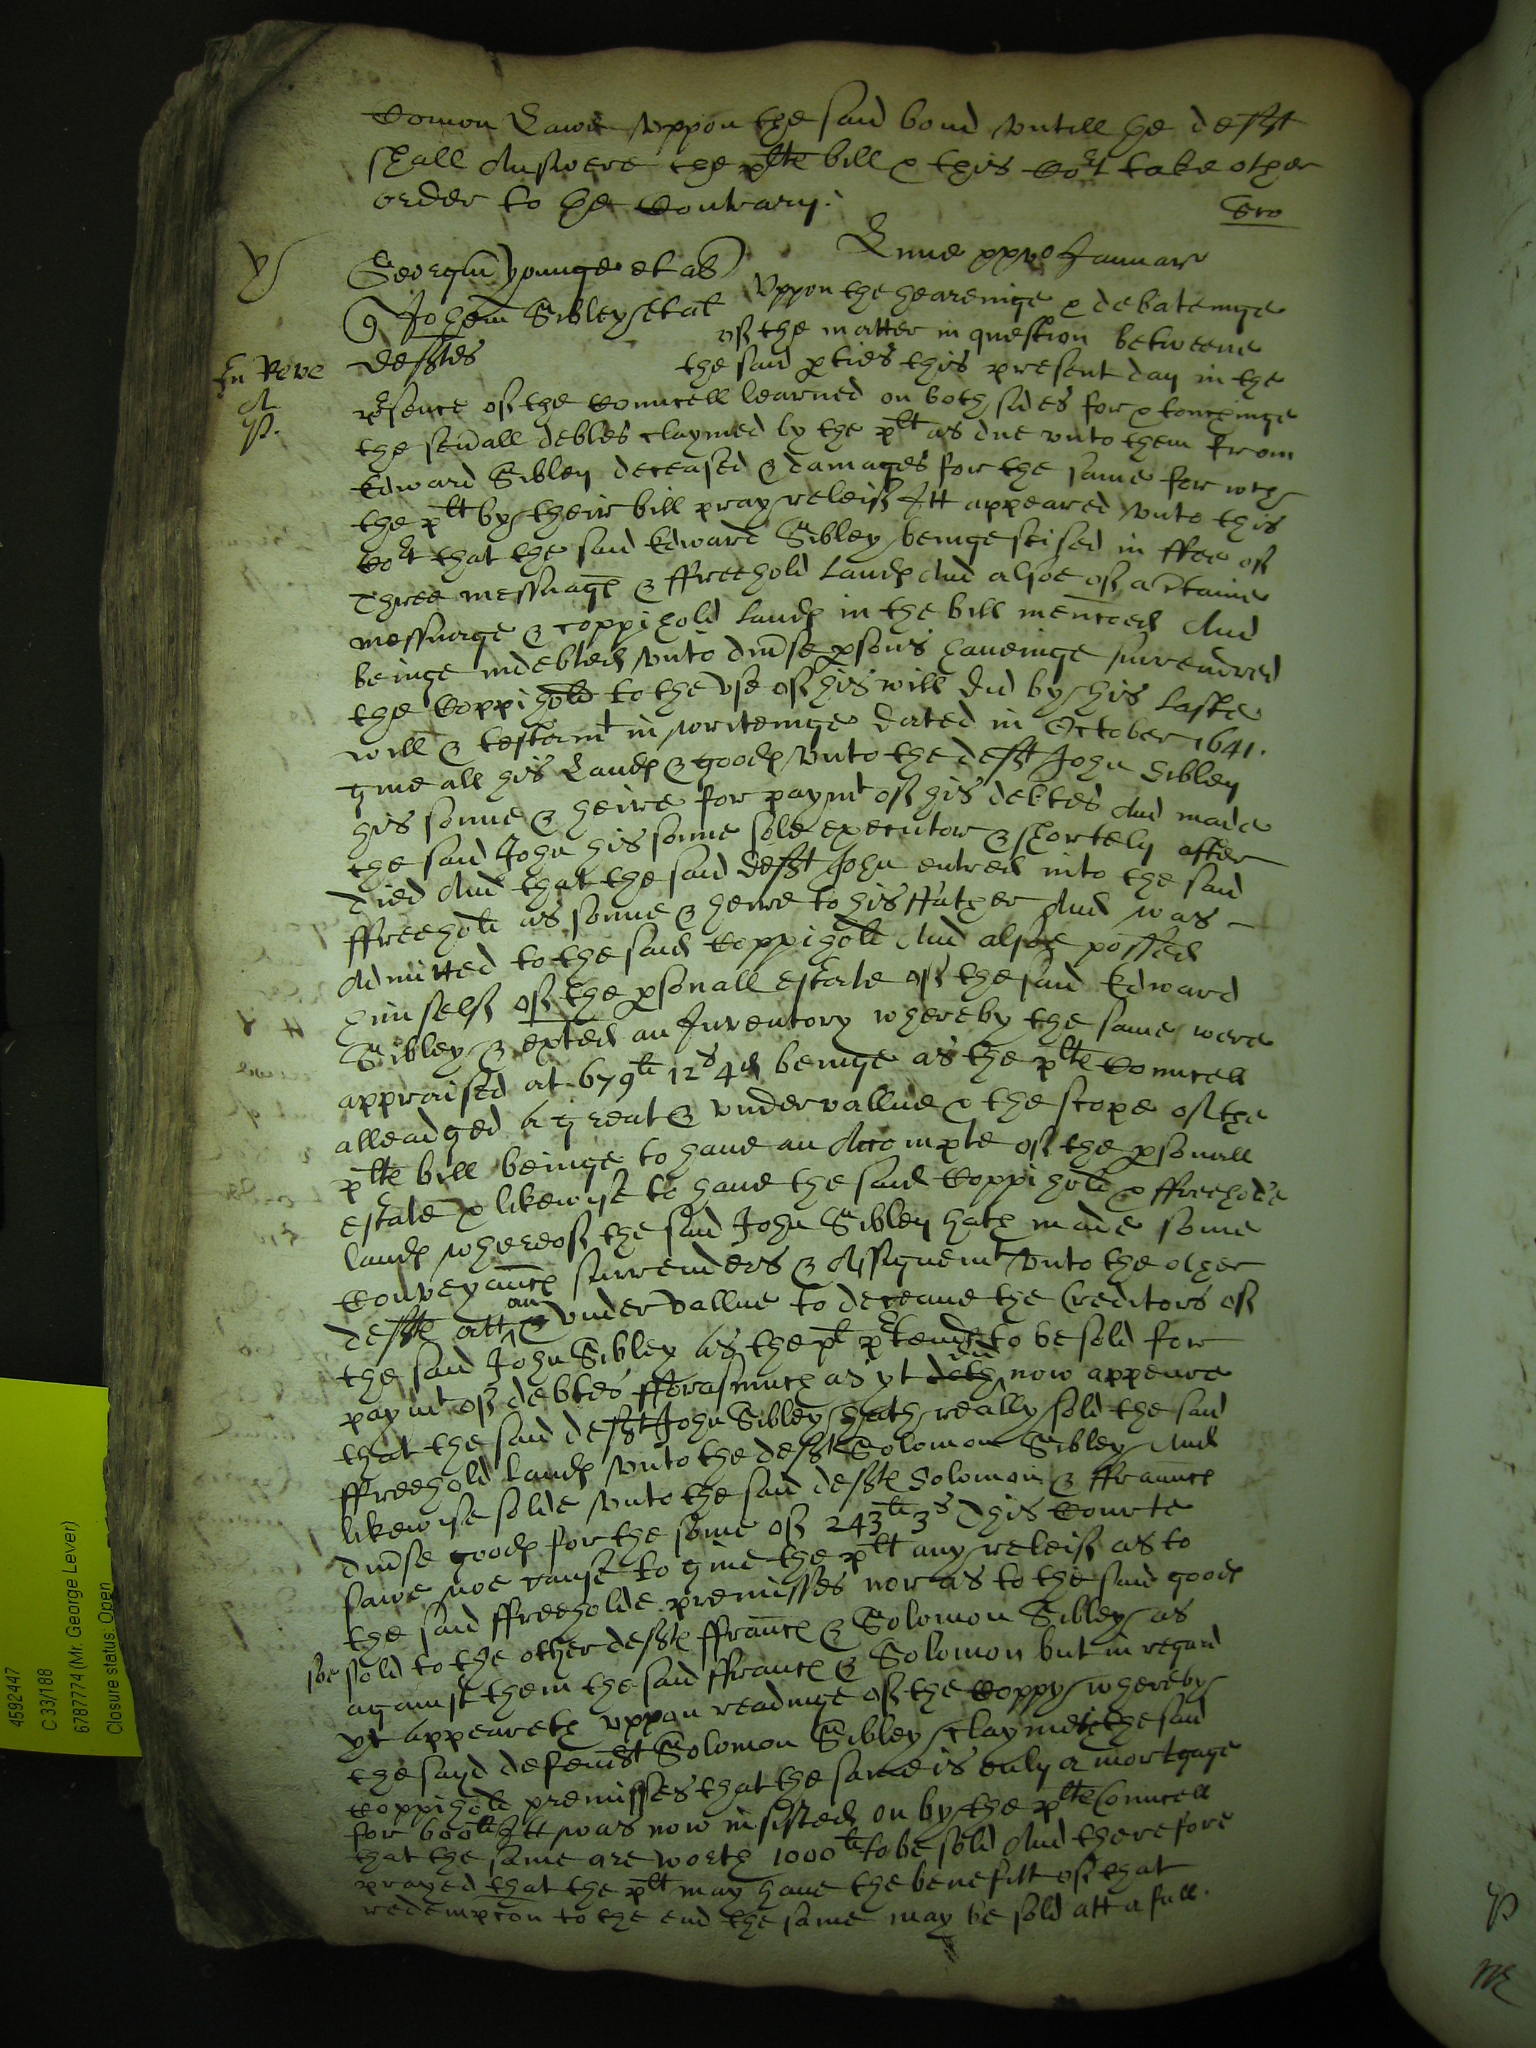 Comon Lawe vppon the said bond vntill he deft
shall Answere the plts bill & this Cort take other
order to the Contrary.
Lune xxvo Januar
Georgiu Younge et al
Vppon the heareinge & debateinge
Johem Sibley et al
of the matter in question betweene
deftes
the said pties this present day in the
presence of the Councell learned on both sides for & touchinge
the seuall debtes claymed by the plt as due vnto them from
Edward Sibley deceased & damages for the same for wch
the plt by their bill pray releif Itt appeared vnto this
Cort that the said Edward Sibley beinge seised in ffee of
Three messuages & ffreehold Landes And alsoe of a ctaine
messuage & coppihold landes in the bill menconed And
beinge indebted vnto diuse psons haueinge surrendred
the Coppihold to the vse of his will did by his Laste
will & testamt in writeinge dated in October 1641.
giue all his Landes & goodes vnto the deft John Sibley
his sonne & heire for paymt of his debtes And made
the said John his sonne sole executor & shortely after
died And that the said deft John entred into the said
ffreehold as sonne & heire to his ffather And was
Admitted to the said Coppihold And alsoe possed
himself of the psonall estate of the said Edward
Sibley & exted an Inventory whereby the same were
appraised at 679li 12s 4d beinge as the plts Councell
alleadged a great & vndervallue & the scope of the
plts bill beinge to haue an Accompte of the psonall
estate & likewise to haue the said Coppihold & ffreehold
landes whereof the said John Sibley hath made some
Conveyances surrenders & Assignemt vnto the other
deftes att an vndervallue to deceaue the Creditors of
the said John Sibley as the plt prtends to be sold for
paymt of debtes fforasmuch as yt doth did now appeare
that the said deft John Sibley hath really sold the said
ffreehold landes vnto the deft Solomon Sibley And
likewise solde vnto the said deftes Solomon & ffrances
diuse goodes for the some of 243li 3s This Courte
sawe noe cause to giue the plt any releif as to
the said ffreeholde premisses nor as to the said goodes
soe sold to the other deftes ffrances & Solomon Sibley as
against them the said ffrances & Solomon but in regard
yt appeareth vppon readinge of the Coppy whereby
the sayd defendt Solomon Sibley claymeth the said
Coppihold premisses that the same is only a mortgage
for 600li Itt was now insisted on by the plts Councell
that the same are worth 1000li to be sold And therefore
prayed that the plt may haue the benefitt of that
redempcon to the end the same may be sold att a full.
4592447
C 33/188
6787774 (Mr. George Lever)
Closure status: Open